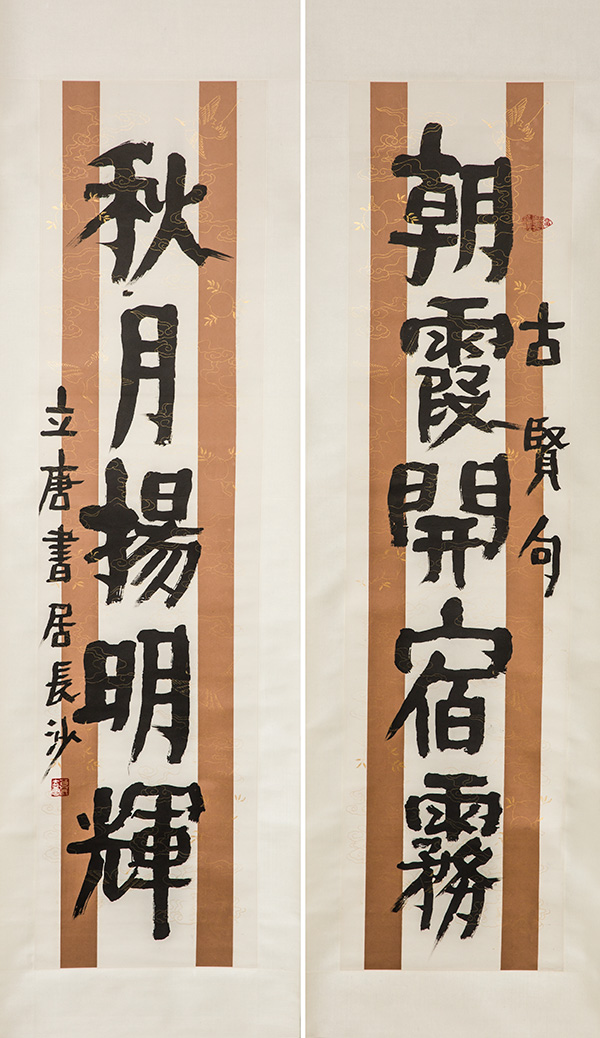 朝霞開宿霧
古賢句
秋月揚明輝
立唐書居長沙